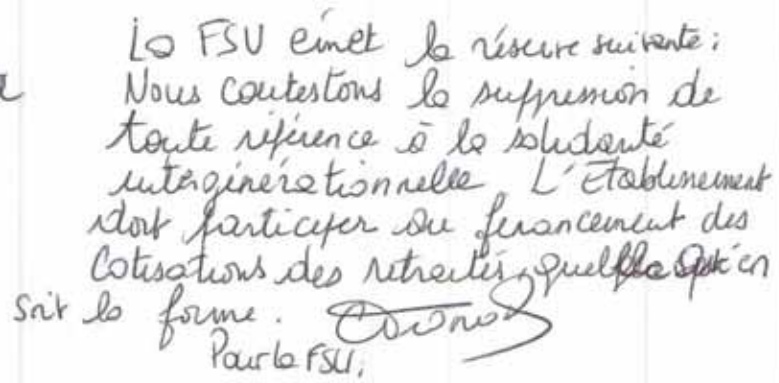 La FSU émet la réserve suivante :
Nous contestons la suppression de
toute référence à la solidarité
intergénérationnelle. L'Etablissement
doit participer au financement des
cotisations des retraités, quelle qu'en
soit la forme.
Pour la FSU,